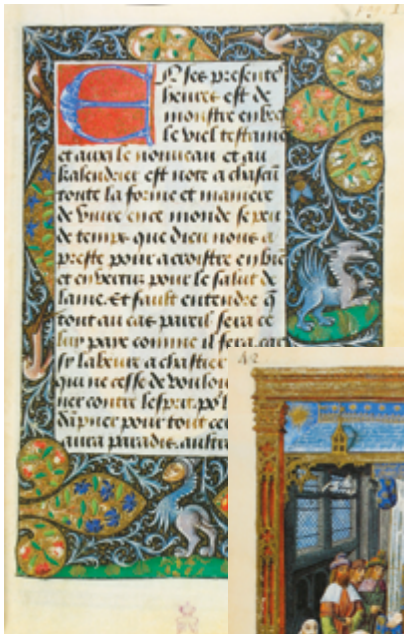 En ses presentes
heures est de
monstre en bref
le viel testame
et aussi le nouveau et au
kalendrier est note a chascun
toute la forme et maniere
de vivre en ce monde se peut
de temps que dieu nous a
preste pour acroistre en bie
et en vertu pour le salut de
lame. Et fault entendre q̃
tout au cas pareil sera ce
luy paye comme il sera car
sy labeure a chastier
qui ne cesse de vouloi
ner contre lesprit po l
dãpner pour tout ce
aura paradis. aultre